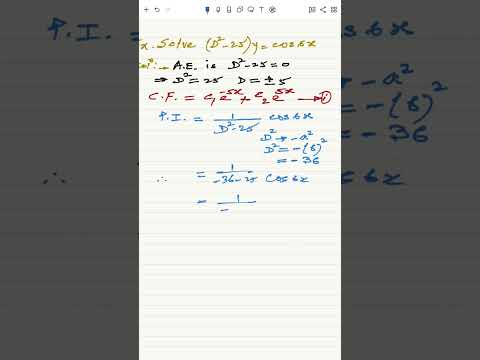 x. Solve (D²-25)y = cos6x
Solⁿ:- A.E. is D²-25=0
⇒ D²=25 D=±5
C.F. = c₁e^-5x + c₂e^5x → ①
P.I. = 1/(D²-25) cos6x
D² → -a²
D² = -(6)²
= -36
∴ = 1/(-36-25) cos6x
= 1/-